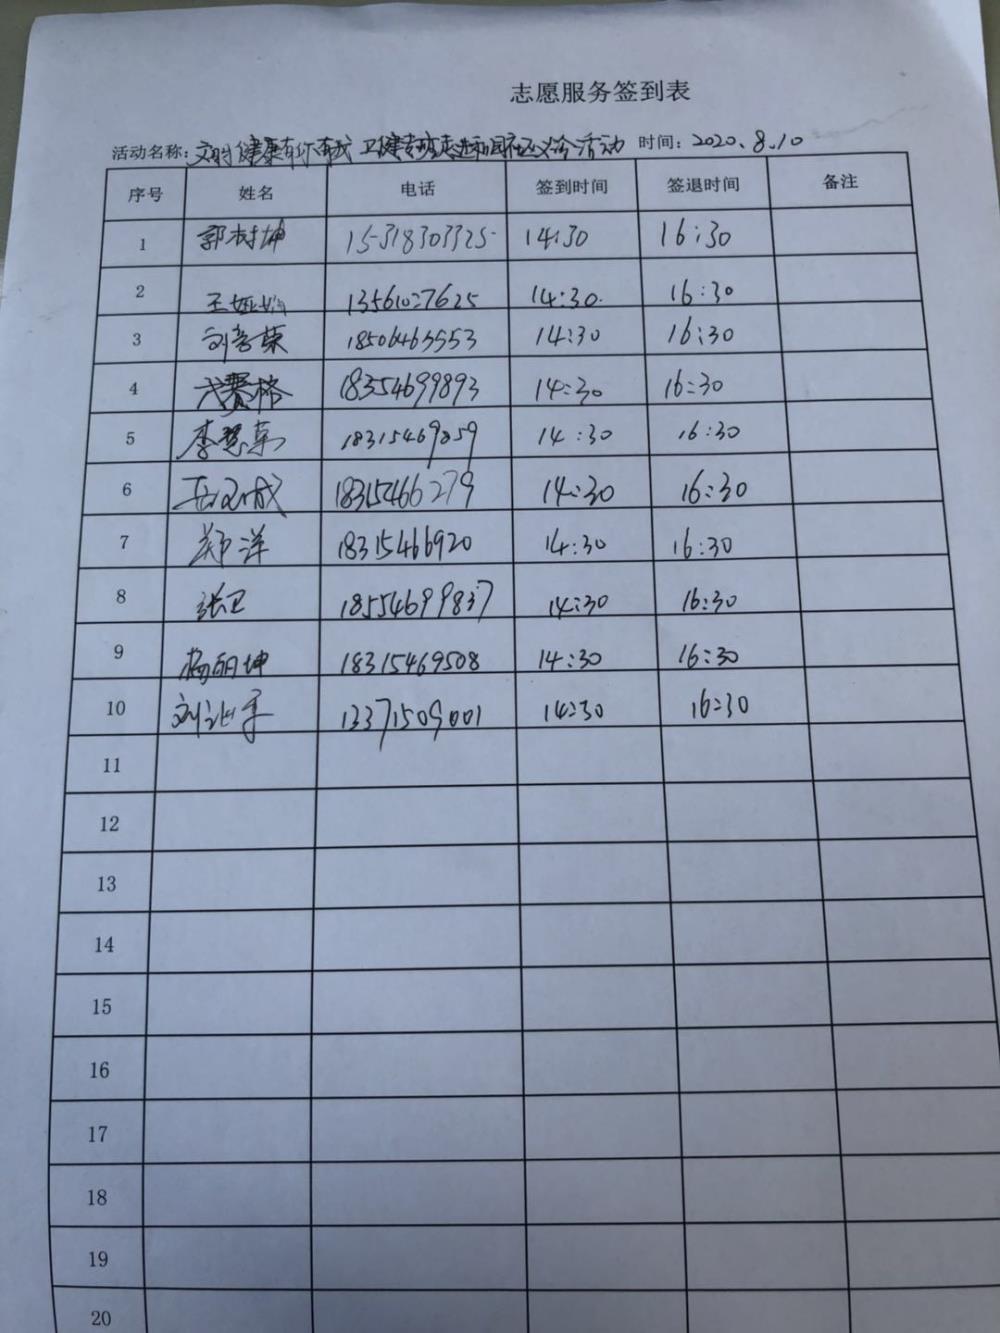 志愿服务签到表
活动名称：文明健康有你有我 卫健专场走进社区义诊活动 时间：2020.8.10
序号 姓名 电话 签到时间 签退时间 备注
1 郭树坤 15318303325 14:30 16:30
2 13561027625 14:30 16:30
3 14:30 16:30
4 赛格 18354699893 14:30 16:30
5 李慧 14:30 16:30
6 18315466279 14:30 16:30
7 郑洋 18315466920 14:30 16:30
8 张卫 18554699837 14:30 16:30
9 杨丽坤 18315469508 14:30 16:30
10 刘 13371509001 14:30 16:30
11
12
13
14
15
16
17
18
19
20